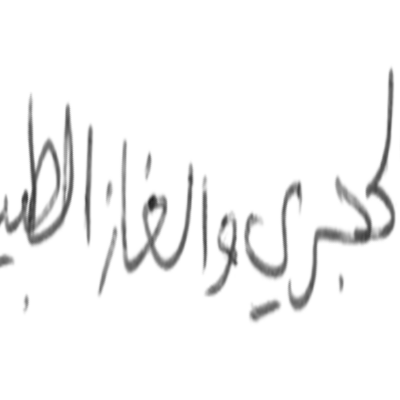 لحجري والغاز الطبي